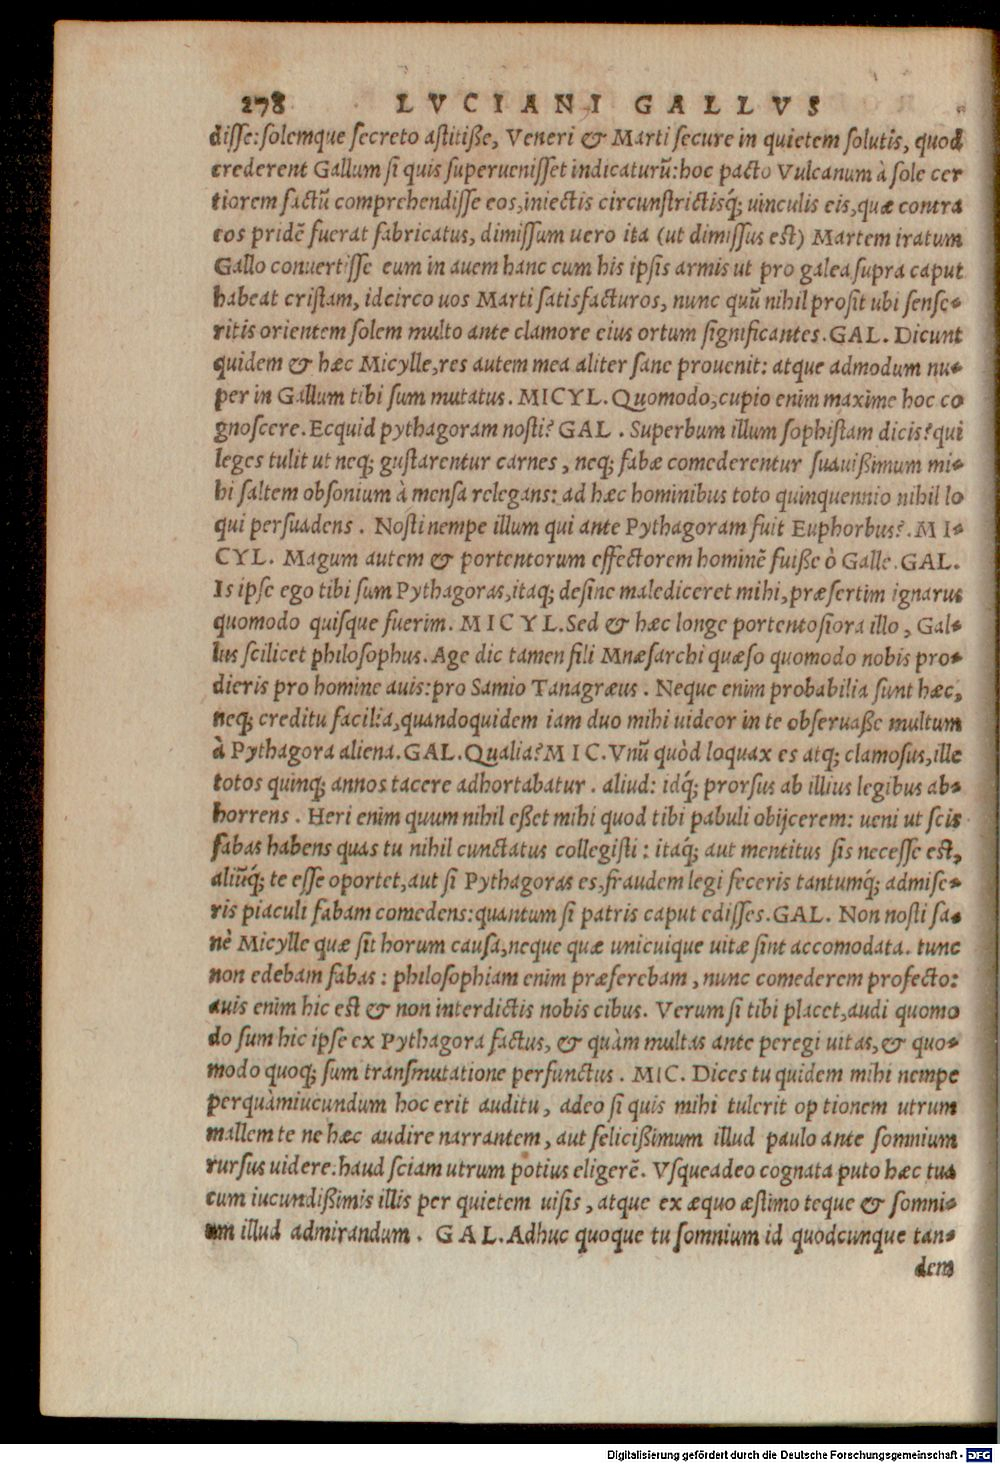 278 LVCIANI GALLVS
disse: solemque secreto astitiße, Veneri & Marti secure in quietem solutis, quod
crederent Gallum si quis superuenisset indicaturũ: hoc pacto Vulcanum à sole cer
tiorem factũ comprehendisse eos, iniectis circunstrictisq́; uinculis eis, quæ contra
eos pridẽ fuerat fabricatus, dimissum uero ita (ut dimissus est) Martem iratum
Gallo conuertisse eum in auem hanc cum his ipsis armis ut pro galea supra caput
habeat cristam, idcirco uos Marti satisfacturos, nunc quũ nihil prosit ubi sense-
ritis orientem solem multo ante clamore eius ortum significantes. GAL. Dicunt
quidem & hæc Micylle, res autem mea aliter sane prouenit: atque admodum nu-
per in Gallum tibi sum mutatus. MICYL. Quomodo, cupio enim maxime hoc co
gnoscere. Ecquid pythagoram nosti? GAL. Superbum illum sophistam dicis? qui
leges tulit ut neq; gustarentur carnes, neq; fabæ comederentur suauißimum mi-
hi saltem obsonium à mensa relegans: ad hæc hominibus toto quinquennio nihil lo
qui persuadens. Nosti nempe illum qui ante Pythagoram fuit Euphorbus?. MI-
CYL. Magum autem & portentorum effectorem hominẽ fuiße ò Galle. GAL.
Is ipse ego tibi sum Pythagoras, itaq; desine malediceret mihi, præsertim ignarus
quomodo quisque fuerim. MICYL. Sed & hæc longe portentosiora illo, Gal-
lus scilicet philosophus. Age dic tamen fili Mnæsarchi quæso quomodo nobis pro-
dieris pro homine auis: pro Samio Tanagræus. Neque enim probabilia sunt hæc,
neq; creditu facilia, quandoquidem iam duo mihi uideor in te obseruaße multum
à Pythagora aliena. GAL. Qualia? MIC. Vnũ quòd loquax es atq; clamosus, ille
totos quinq; annos tacere adhortabatur. aliud: idq́; prorsus ab illius legibus ab-
horrens. Heri enim quum nihil eßet mihi quod tibi pabuli obijcerem: ueni ut scis
fabas habens quas tu nihil cunctatus collegisti: itaq́; aut mentitus sis necesse est,
aliũq́; te esse oportet, aut si Pythagoras es, fraudem legi feceris tantumq́; admise-
ris piaculi fabam comedens: quantum si patris caput edisses. GAL. Non nosti sa-
nè Micylle quæ sit horum causa, neque quæ unicuique uitæ sint accomodata. tunc
non edebam fabas: philosophiam enim præferebam, nunc comederem profecto:
auis enim hic est & non interdictis nobis cibus. Verum si tibi placet, audi quomo
do sum hic ipse ex Pythagora factus, & quàm multas ante peregi uitas, & quo-
modo quoq; sum transmutatione perfunctus. MIC. Dices tu quidem mihi nempe
perquàmiucundum hoc erit auditu, adeo si quis mihi tulerit optionem utrum
mallem te ne hæc audire narrantem, aut felicißimum illud paulo ante somnium
rursus uidere. haud sciam utrum potius eligerẽ. Vsqueadeo cognata puto hæc tua
cum iucundißimis illis per quietem uisis, atque ex æquo æstimo teque & somni-
um illud admirandum. GAL. Adhuc quoque tu somnium id quodcunque tan-
dem
Digitalisierung gefördert durch die Deutsche Forschungsgemeinschaft - DFG